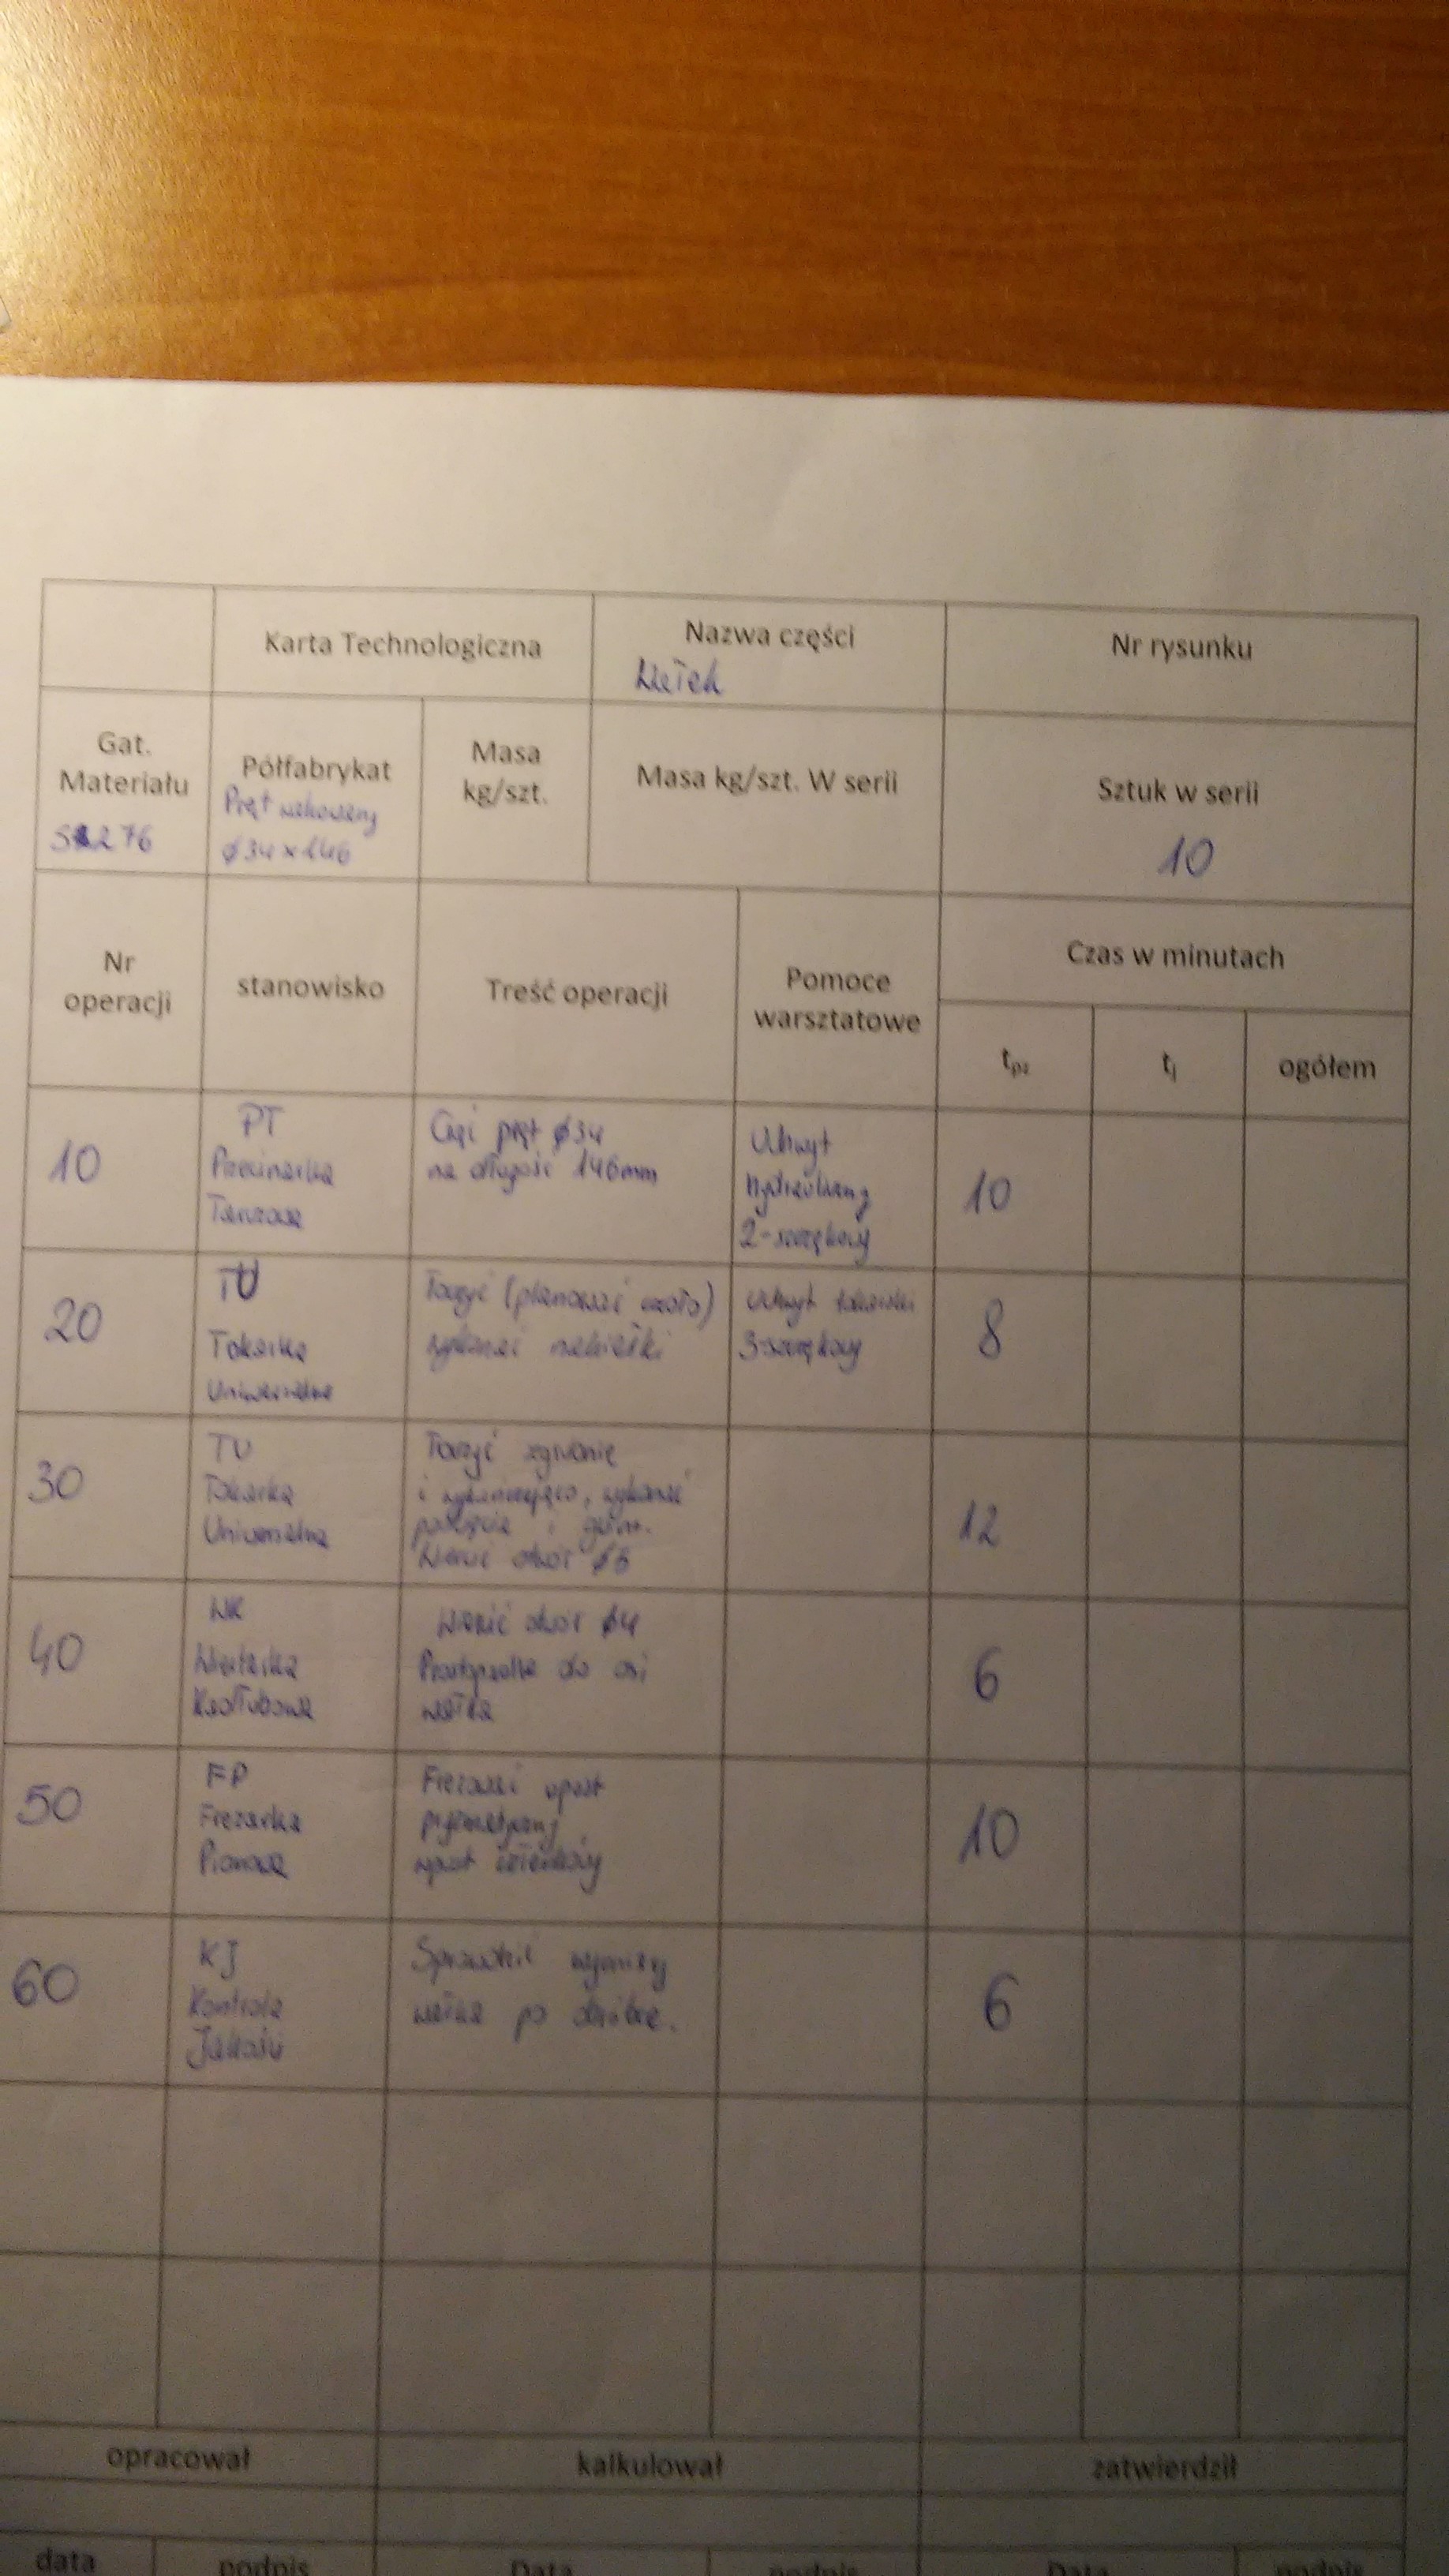 Karta Technologiczna
Nazwa części
Wałek
Nr rysunku
Gat.
Materiału
Półfabrykat
Pręt walcowany
ø34 x 146
Masa
kg/szt.
Masa kg/szt. W serii
Sztuk w serii
10
Nr
operacji
stanowisko
Treść operacji
Pomoce
warsztatowe
Czas w minutach
tpz
tj
ogółem
10
PT
Przecinarka
Tarczowa
Ciąć pręt ø34
na długość 146mm
Uchwyt
Hydrauliczny
2-szczękowy
10
20
TU
Tokarka
Uniwersalna
Toczyć (planować czoło)
wykonać nakiełki
Uchwyt tokarski
3-szczękowy
8
30
TU
Tokarka
Uniwersalna
Toczyć zgrubnie
i wykańczająco, wykonać
i
Wiercić otwór
12
40
WK
Wiertarka
Kadłubowa
Wiercić otwór ø4
Prostopadle do osi
wałka
6
50
FP
Frezarka
Pionowa
Frezować wpust
pryzmatyczny
wpust czółenkowy
10
60
KJ
Kontrola
Jakości
Sprawdzić wymiary
wałka po obróbce.
6
opracował
kalkulował
zatwierdził
data
podpis
Data
podpis
Data
podpis